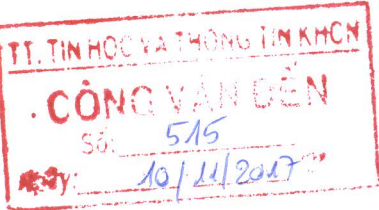 TT. TIN HỌC VÀ THÔNG TIN KHCN
CÔNG VĂN ĐẾN
Số: 515
Ngày: 10/11/2017